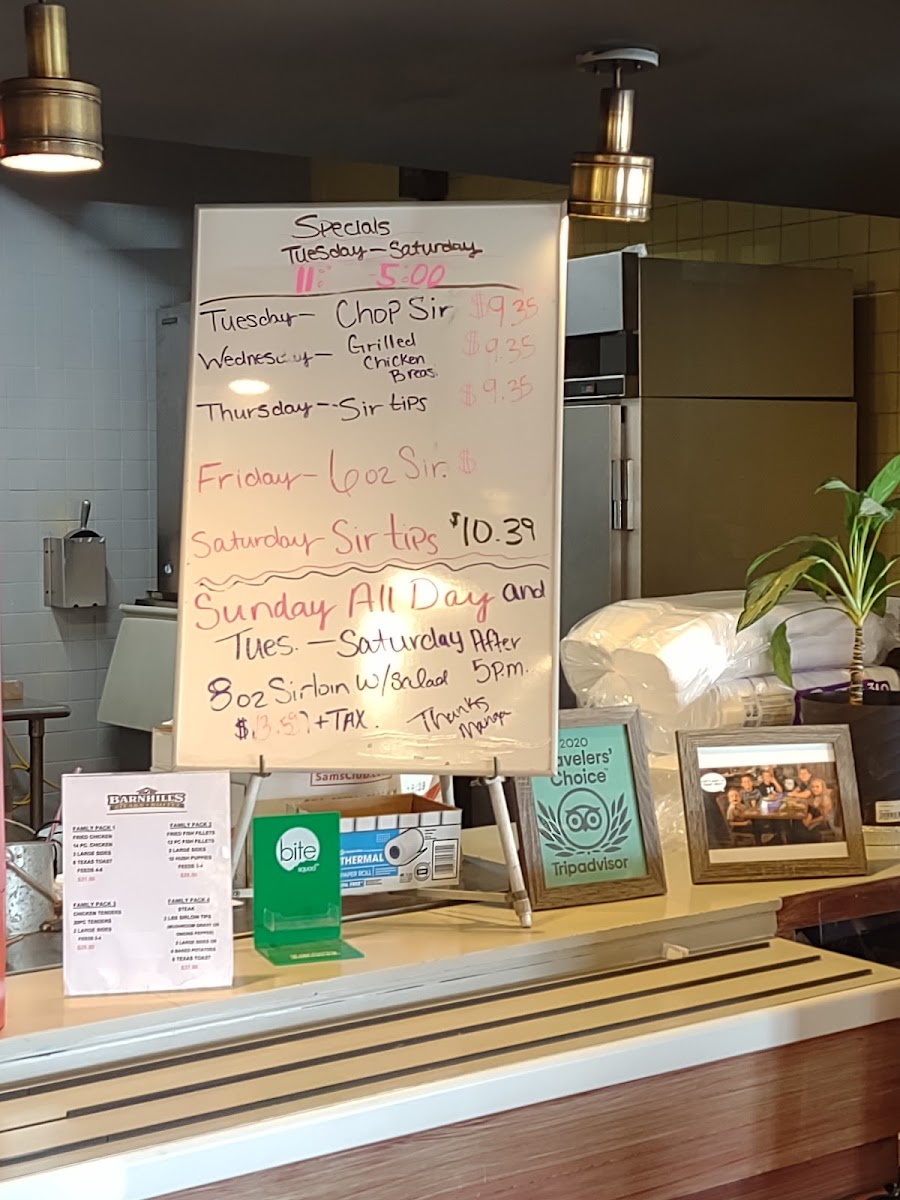 Specials
Tuesday – Saturday
11: 5:00
Tuesday – Chop Sir $9.35
Wednesday – Grilled Chicken Breas $9.35
Thursday -- Sir tips $9.35
Friday – 6oz Sir. $
Saturday Sir tips $10.39
Sunday All Day and
Tues. – Saturday After
8oz Sirloin w/salad 5p.m.
+ TAX. Thanks
BARNHILL'S
FAMILY PACK 1
FRIED CHICKEN
14 PC. CHICKEN
2 LARGE SIDES
8 TEXAS TOAST
FEEDS 4-6
FAMILY PACK 2
FRIED FISH FILLETS
12 PC FISH FILLETS
2 LARGE SIDES
10 HUSH PUPPIES
FAMILY PACK 3
CHICKEN TENDERS
20PC TENDERS
2 LARGE SIDES
FAMILY PACK 4
STEAK
2 LBS SIRLOIN TIPS
(MUSHROOM GRAVY OR
ONIONS PEPPER)
2 LARGE SIDES OR
BAKED POTATOES
TEXAS TOAST
bite
squad
THERMAL
PAPER ROLL
2020
avelers'
Choice
Tripadvisor